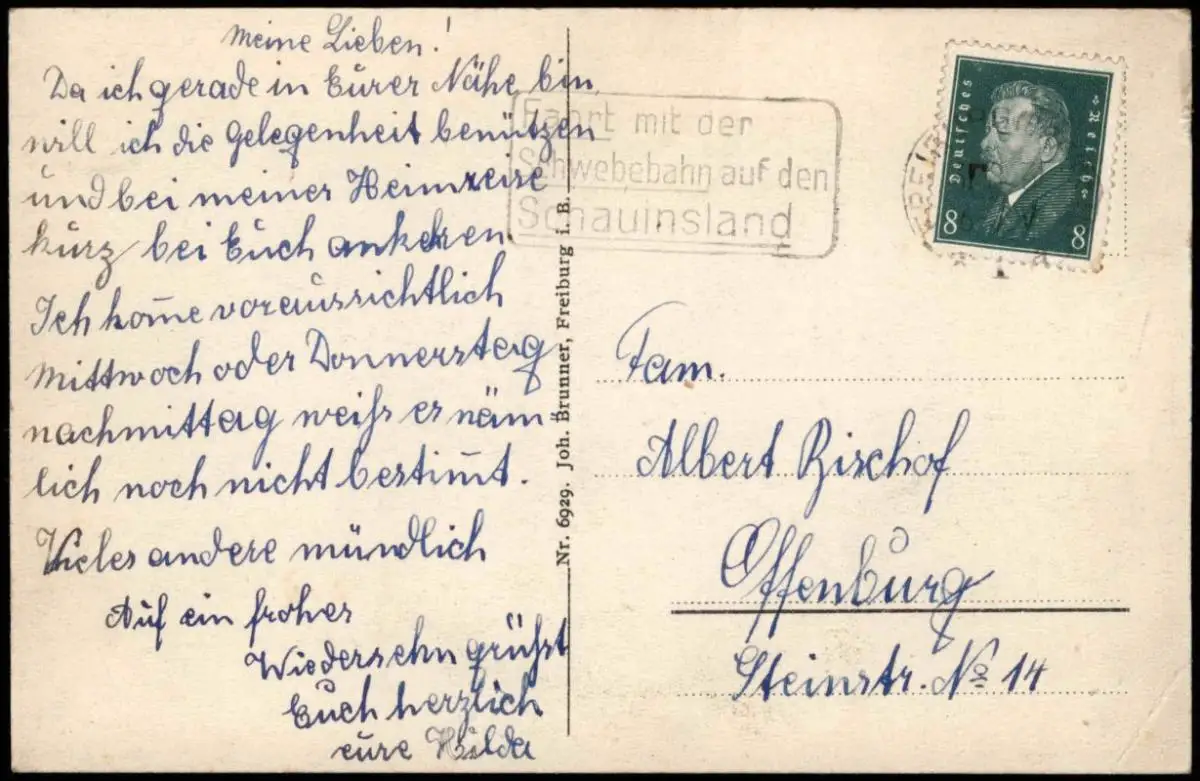 Meine Lieben!
Da ich gerade in Eurer Nähe bin
will ich die Gelegenheit benützen
und bei meiner Heimreise
kurz bei Euch ankeren
Ich kom̄e voraussichtlich
Mittwoch oder Donnerstag
nachmittag weiss es näm
lich noch nicht bestim̄t.
Vieles andere mündlich
Auf ein frohes
Wiedersehn grüsst
Euch herzlich
eure Hilda
Nr. 6929. Joh. Brunner, Freiburg i. B.
Fahrt mit der
Schwebebahn auf den
Schauinsland
Deutsches
Reich
8 8
Fam.
Albert Bischof
Offenburg
Steinstr. No 14